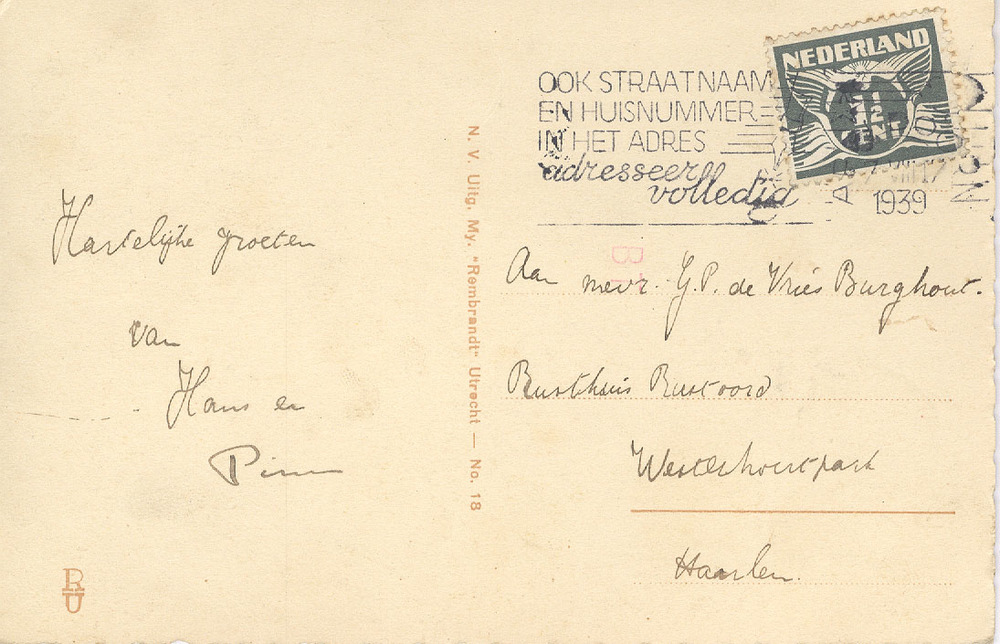 Hartelijke groeten
van
Hans en
Pim
R
U
N. V. Uitg. My. "Rembrandt" Utrecht — No. 18
OOK STRAATNAAM
EN HUISNUMMER
IN HET ADRES
adresseer
volledig
NEDERLAND
1 1/2
CENT
1939
Aan mevr. G.P. de Vries Burghout.
Rusthuis Rustoord
Westerhoutpark
Haarlem.